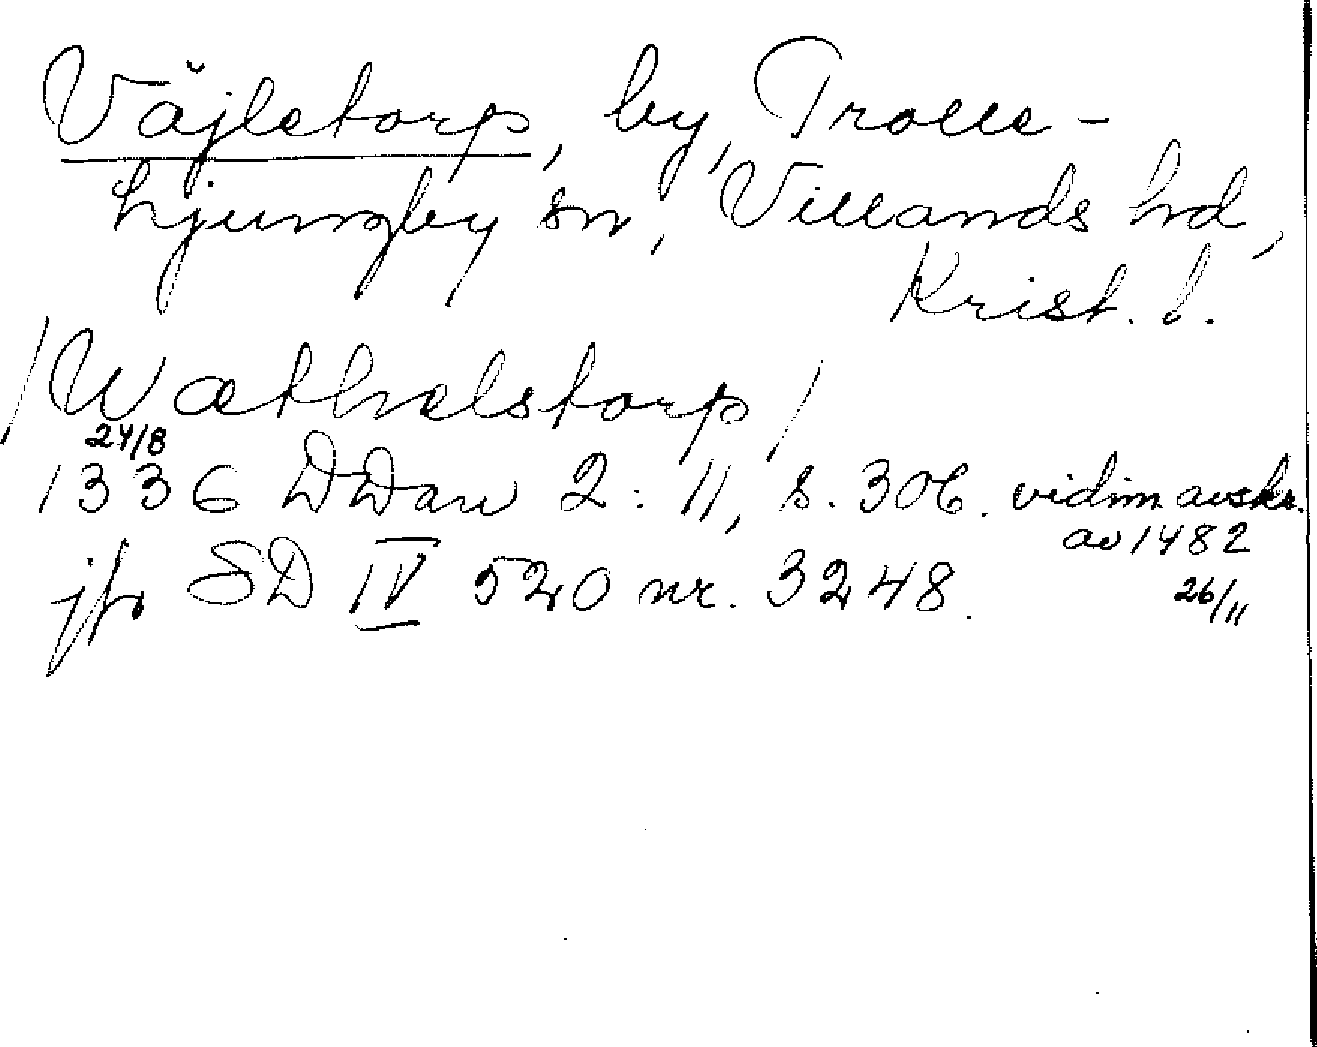 Väjletorp, by, Trolle-
ljungby sn, Villands hd,
Krist. l.
/Wæthelstorp/
24/8
1336 DDan 2: 11, s. 306. vidim. avskr.
av 1482
jfr SD IV 520 nr. 3248. 26/11